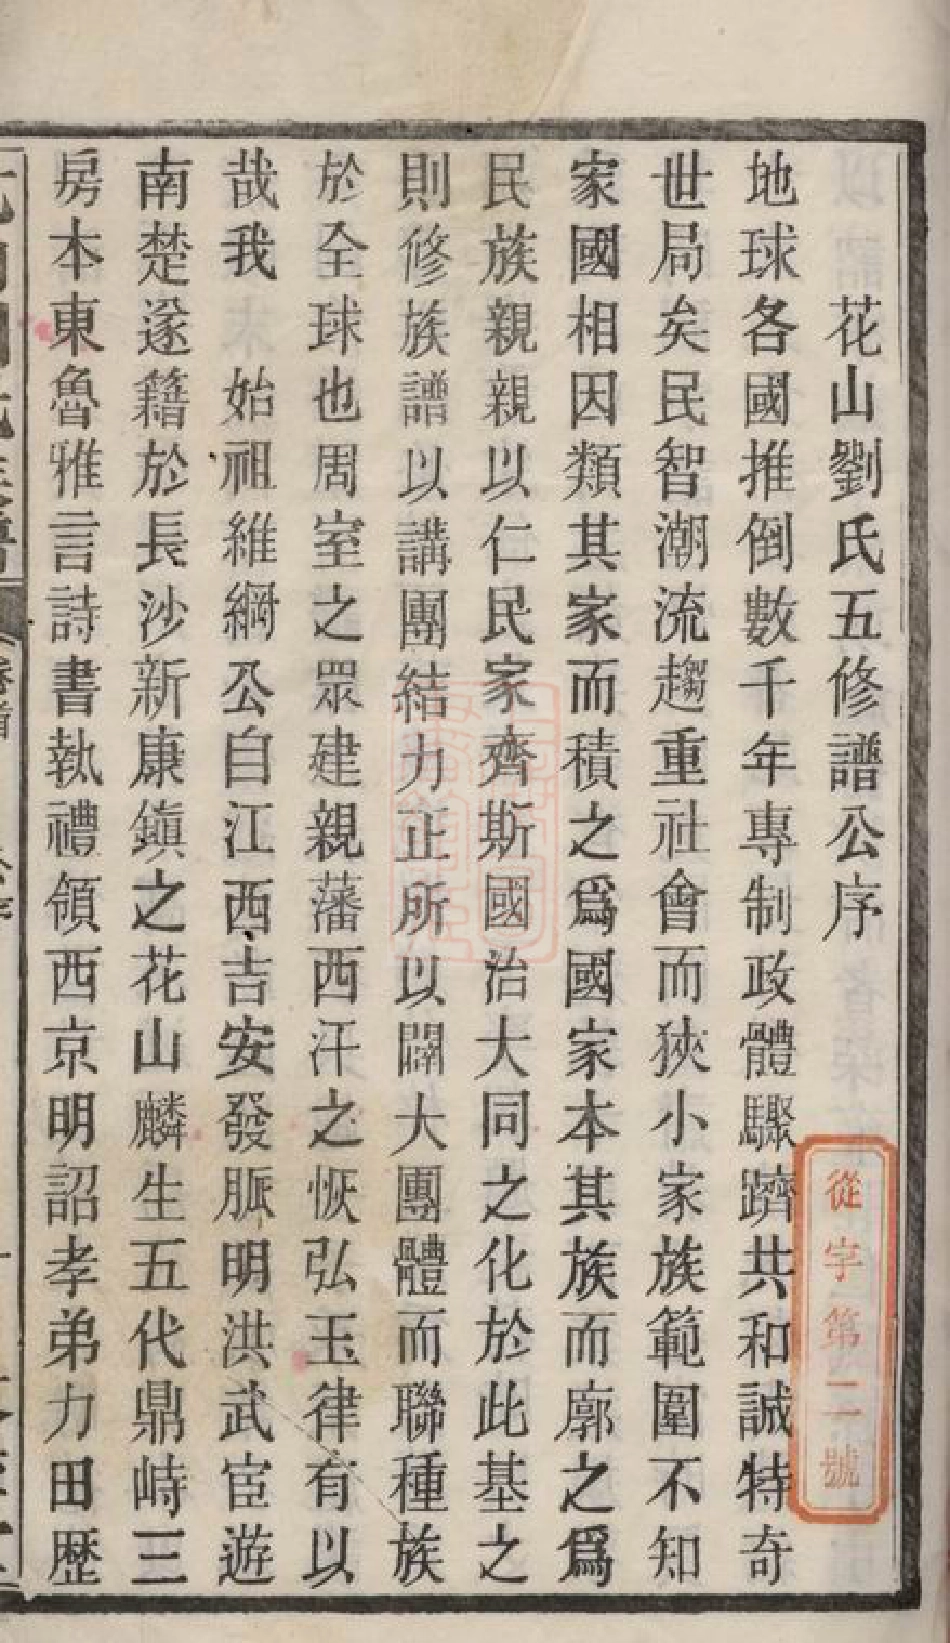 花山劉氏五修譜公序
地球各國推倒數千年專制政體驟躋共和誠特奇
世局矣民智潮流趨重社會而狹小家族範圍不知
家國相因類其家而積之爲國家本其族而廓之爲
民族親親以仁民家齊斯國治大同之化於此基之
則修族譜以講團結力正所以闢大團體而聯種族
於全球也周室之眾建親藩西汗之恢弘玉律有以
哉我 始祖維綱公自江西吉安發脈明洪武宦遊
南楚遂籍於長沙新康鎮之花山麟生五代鼎峙三
房本東魯雅言詩書執禮領西京明詔孝弟力田歷
從字第二號
卷首